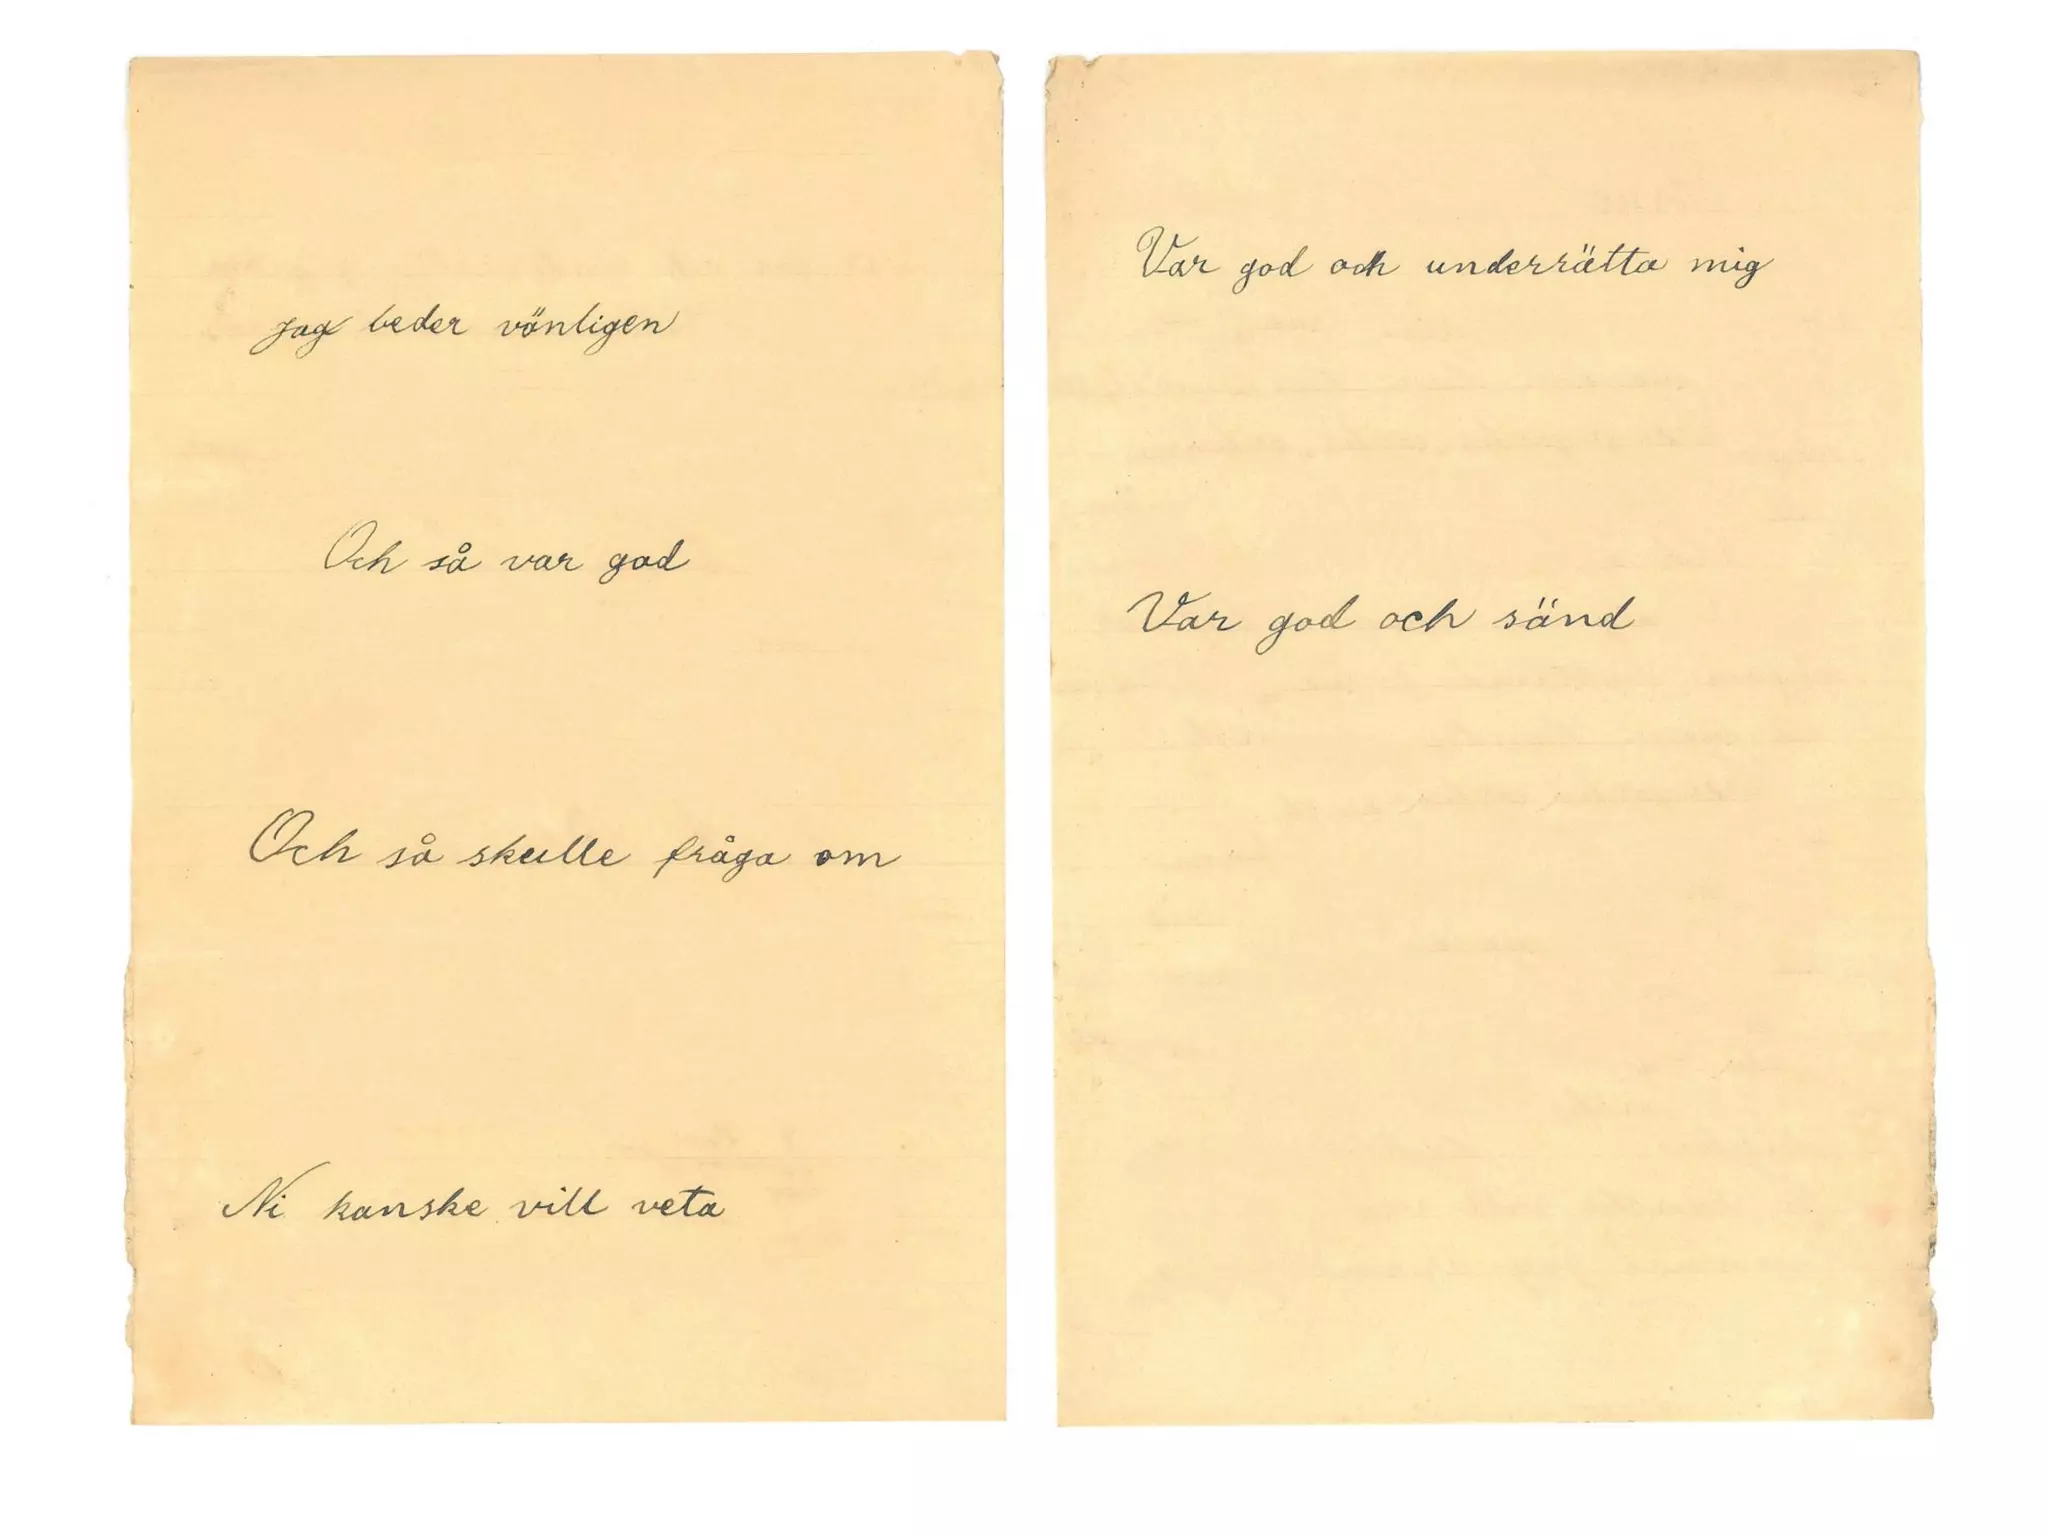 jag beder vänligen
Och så var god
Och så skulle fråga om
Ni kanske vill veta
Var god och underrätta mig
Var god och sänd